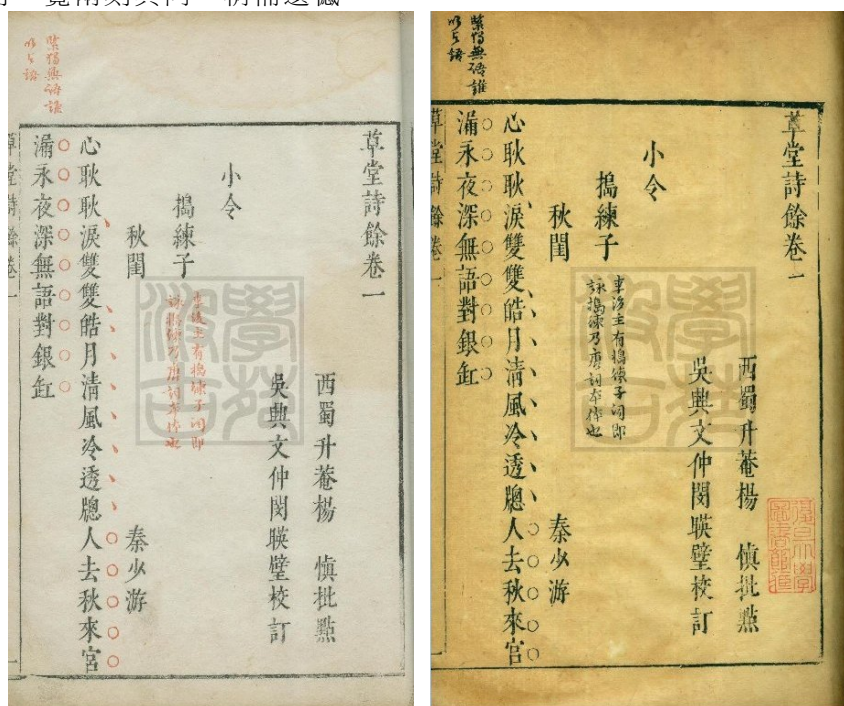 草堂詩餘卷一
西蜀升菴楊 慎批點
吳興文仲閔暎璧校訂
小令
搗練子
李後主有搗練子詞即
詠搗練乃唐詞本体也
秋閨
秦少游
心耿耿淚雙雙皓月清風冷透牕人去秋來宮
漏永夜深無語對銀缸
紧揭無語誰
草堂詩餘卷一
草堂詩餘卷一
西蜀升菴楊 慎批點
吳興文仲閔暎璧校訂
小令
搗練子
李後主有搗練子詞即
詠搗練乃唐詞本体也
秋閨
秦少游
心耿耿淚雙雙皓月清風冷透牕人去秋來宮
漏永夜深無語對銀缸
草堂詩餘卷一
學苑汲古
學苑汲古